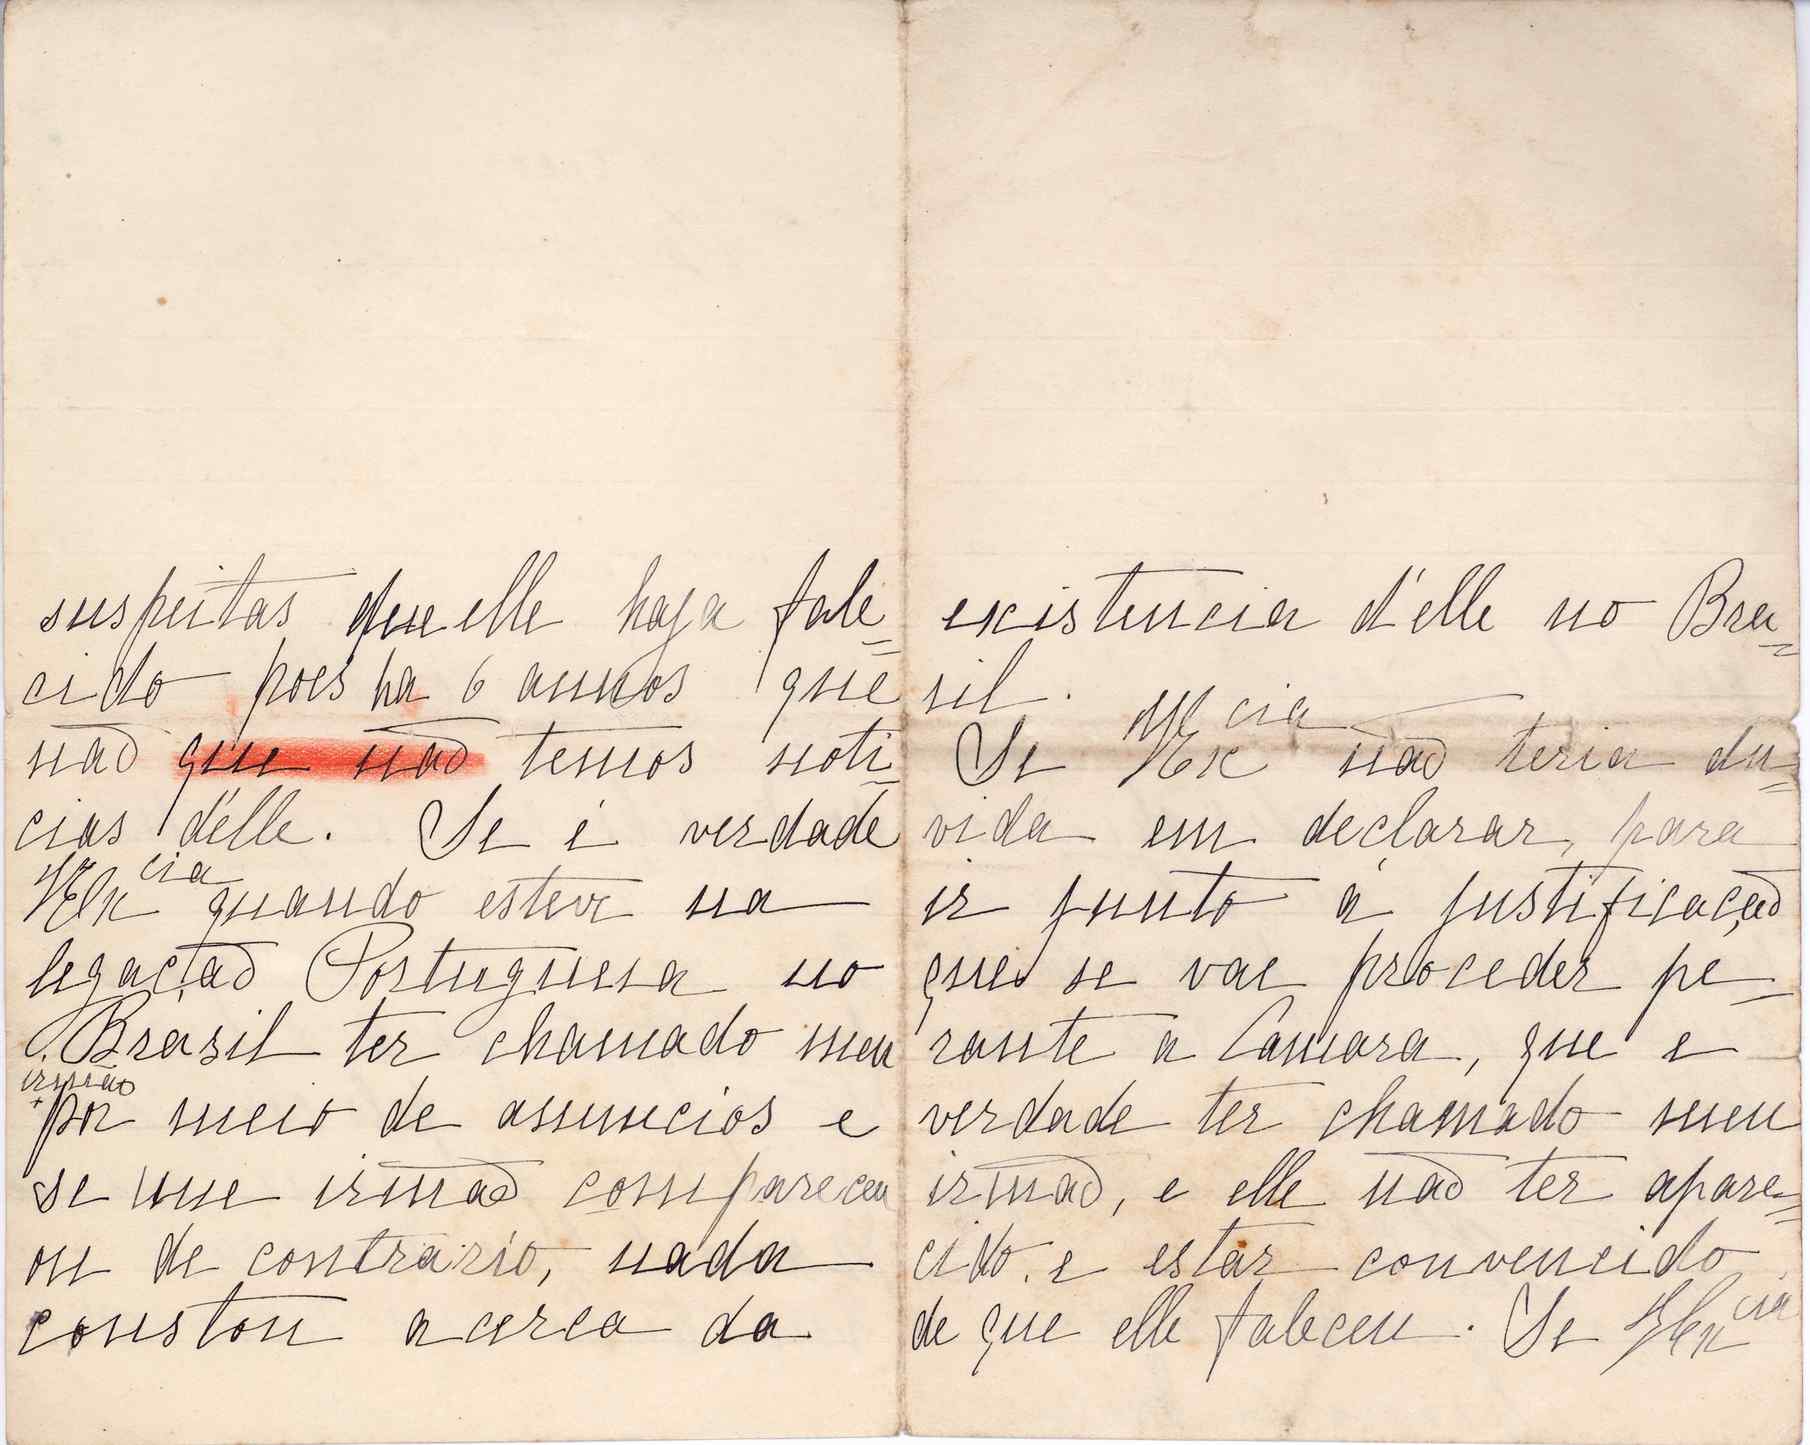 suspeitas que elle haja fale=
cido poes ha 6 annos que
não que não temos noti=
cias d'elle. Se é verdade
VEx cia quando esteve na
legação Portuguesa no
Brasil ter chamado meu
irmão
por meio de annuncios e
se me irmão compareceu
ou de contrario, nada
constou acerca da
existencia d'elle no Bra=
sil.
Se VEx cia não teria du=
vida em declarar, para
ir junto á justificação
que se vae proceder pe=
rante a Camara, que e
verdade ter chamado meu
irmão, e elle não ter apare=
cido. e estar convencido
de que elle faleceu. Se VEx cia